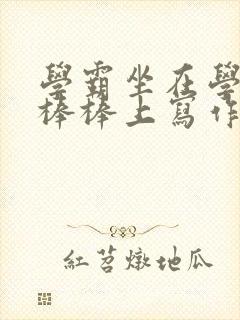 學霸坐在學
棒棒上寫作
紅苕燉地瓜